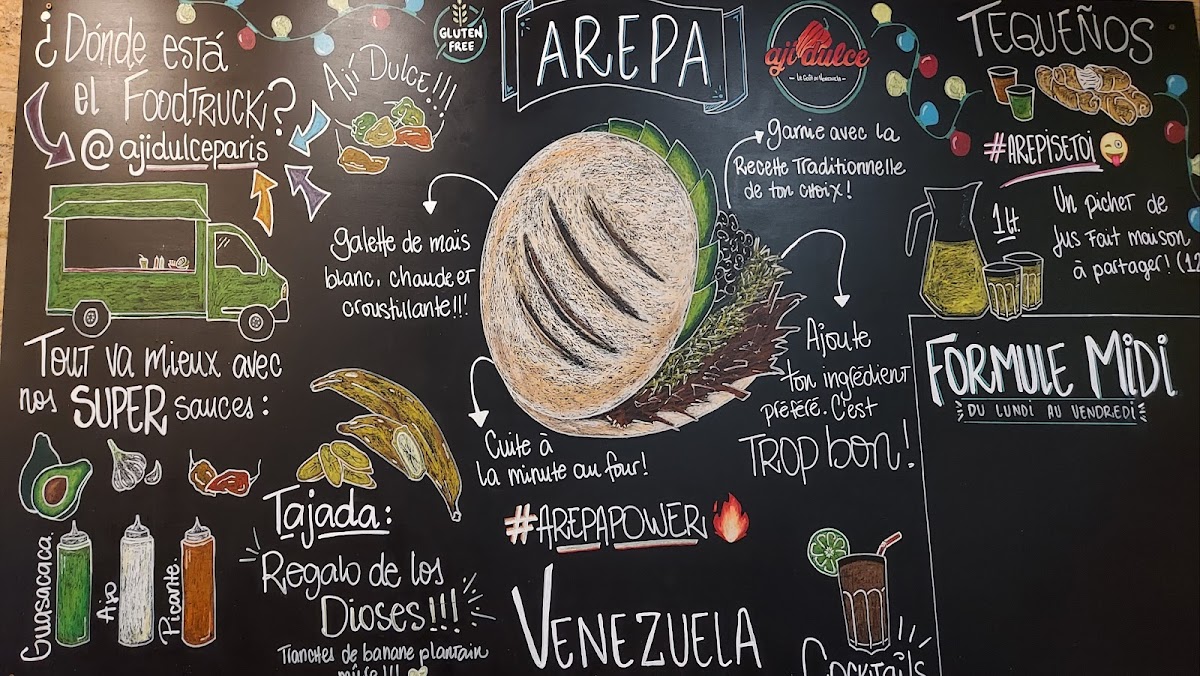 ¿Dónde está
el FoodTruck?
@ajidulceparis
Ají Dulce!!!
GLUTEN
FREE
AREPA
aji dulce
TEQUEÑOS
#AREPISETOI
1Lt.
Un picher de
Jus Fait maison
à partager! (12
garnie avec la
Recette Traditionnelle
de ton choix!
galette de maïs
blanc, chaude et
croustillante!!!
Ajoute
ton ingrédient
préféré. C'est
TROP bon!
Cuite à
la minute au four!
#AREPAPOWER
VENEZUELA
Tout va mieux avec
nos SUPER sauces:
Guasacaca
Ajo
Picante
Tajada:
Regalo de los
Dioses!!!
Tranches de banane plantain
mûre!!!
Cocktails
FORMULE MiDi
DU LUNDI AU VENDREDI